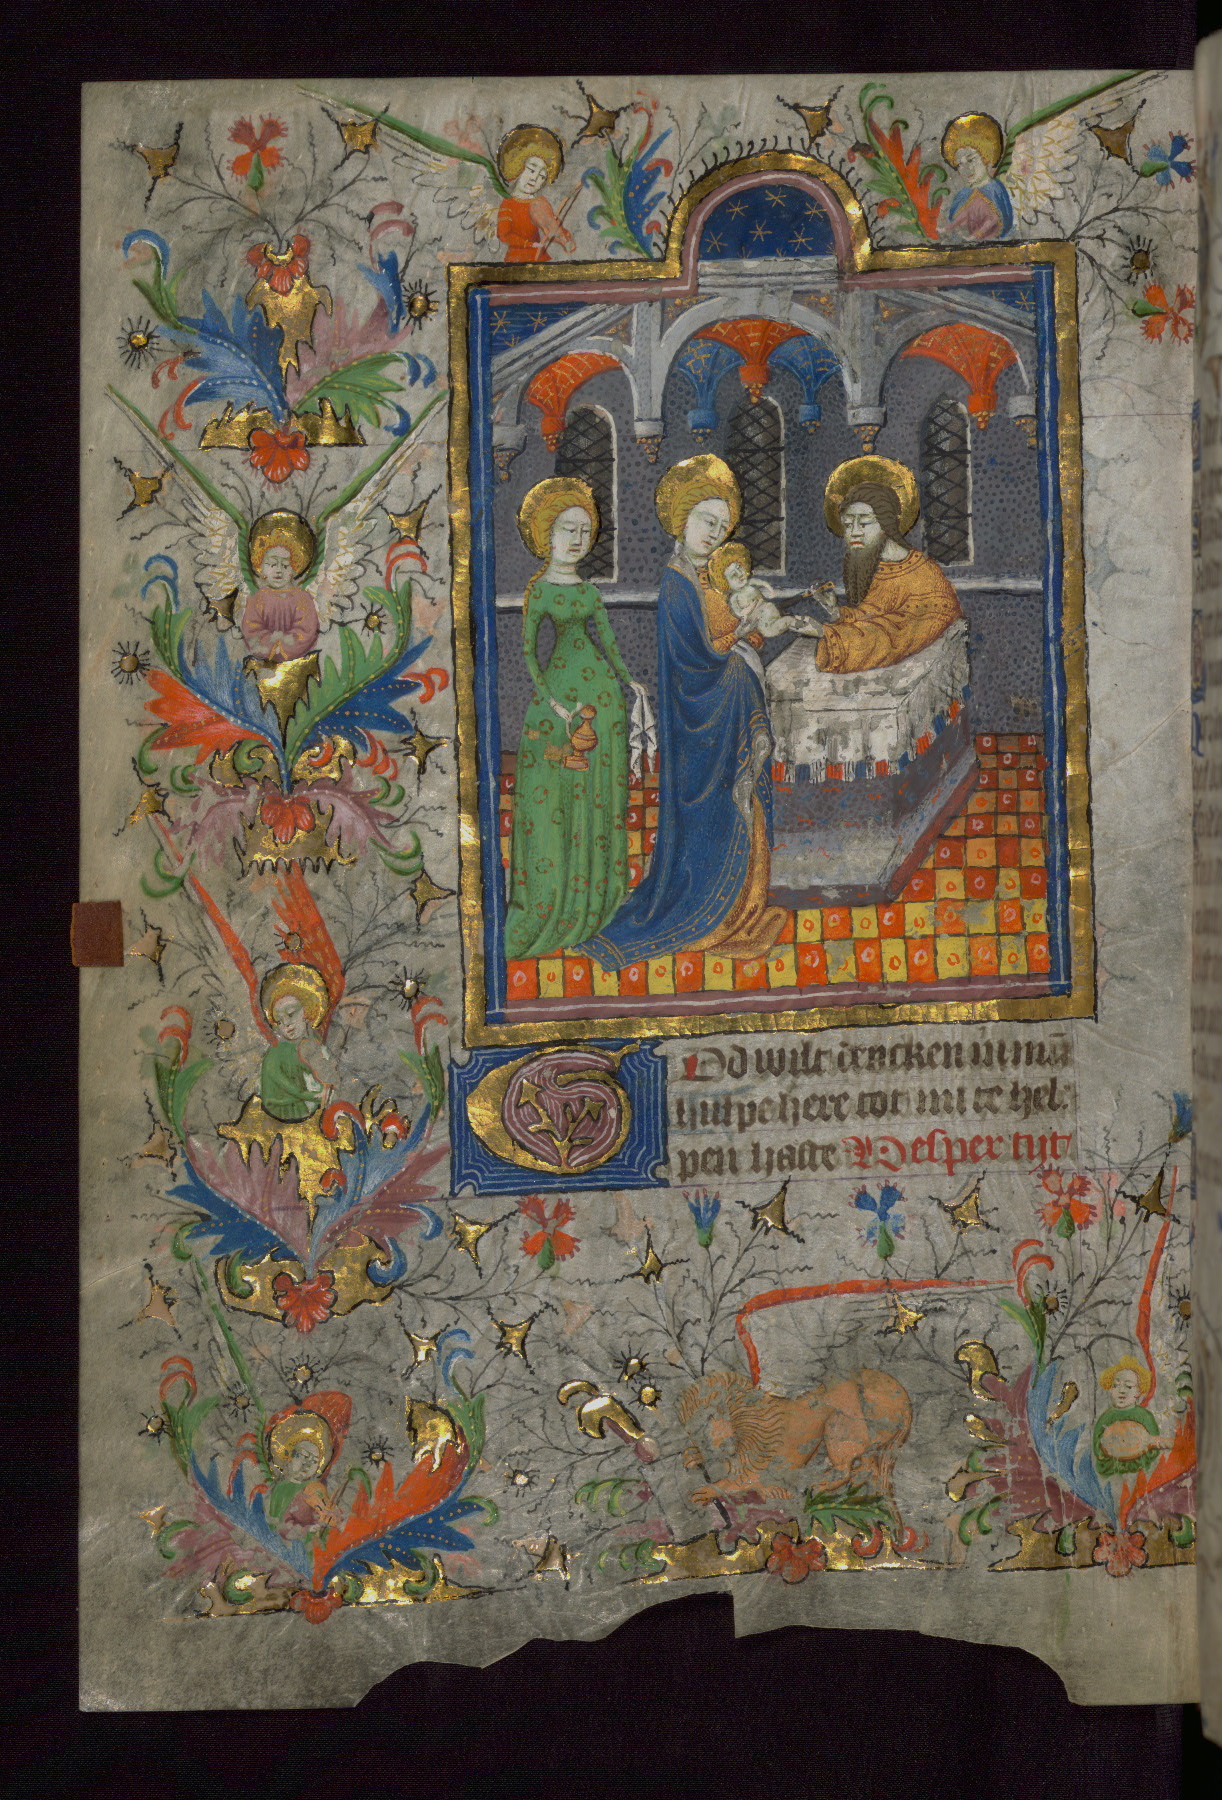 God wilt dencken in min̄
hulpe here tot mi te hel-
pen haste Vesper tijt